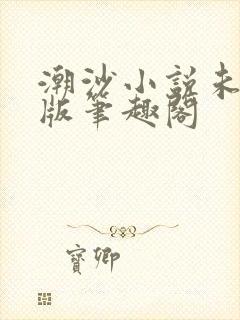 潮沙小説未
版筆趣閣
寳卿